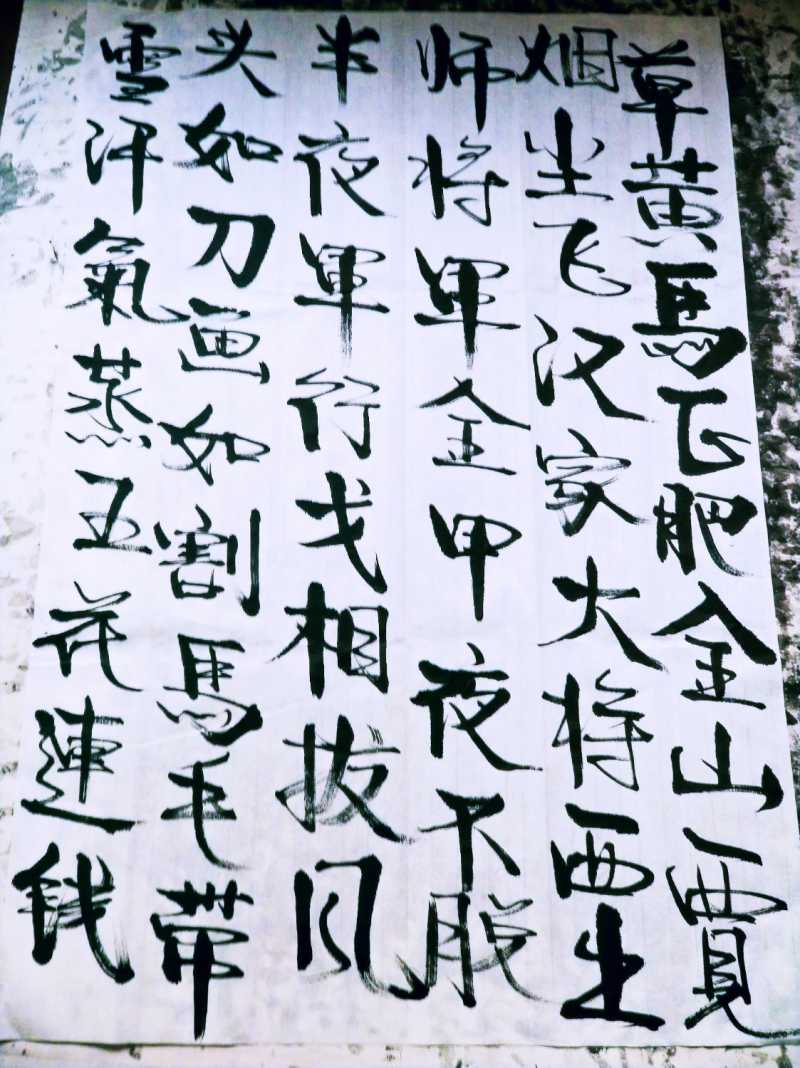 草黄馬正肥金山西見
烟尘飞汉家大将西出
师将軍金甲夜不脱
半夜軍行戈相拔风
头如刀面如割馬毛带
雪汗氣蒸五花連钱